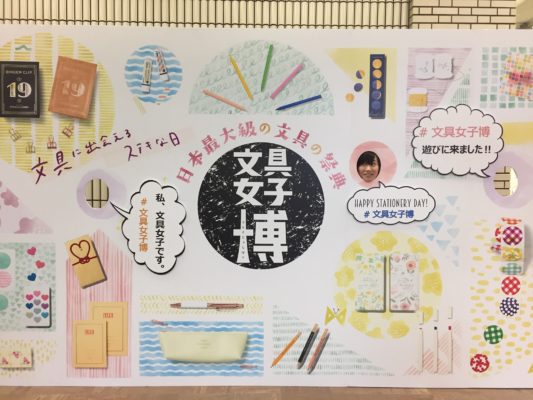 文具に出会える
ステキな日
日本最大級の文具の祭典
文具
女子
博
私、文具女子です。
# 文具女子博
HAPPY STATIONERY DAY!
# 文具女子博
# 文具女子博
遊びに来ました!!
19
19